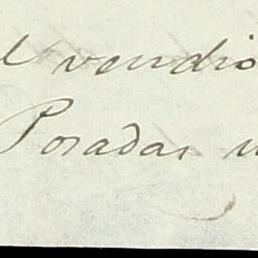 vendio
Posadas